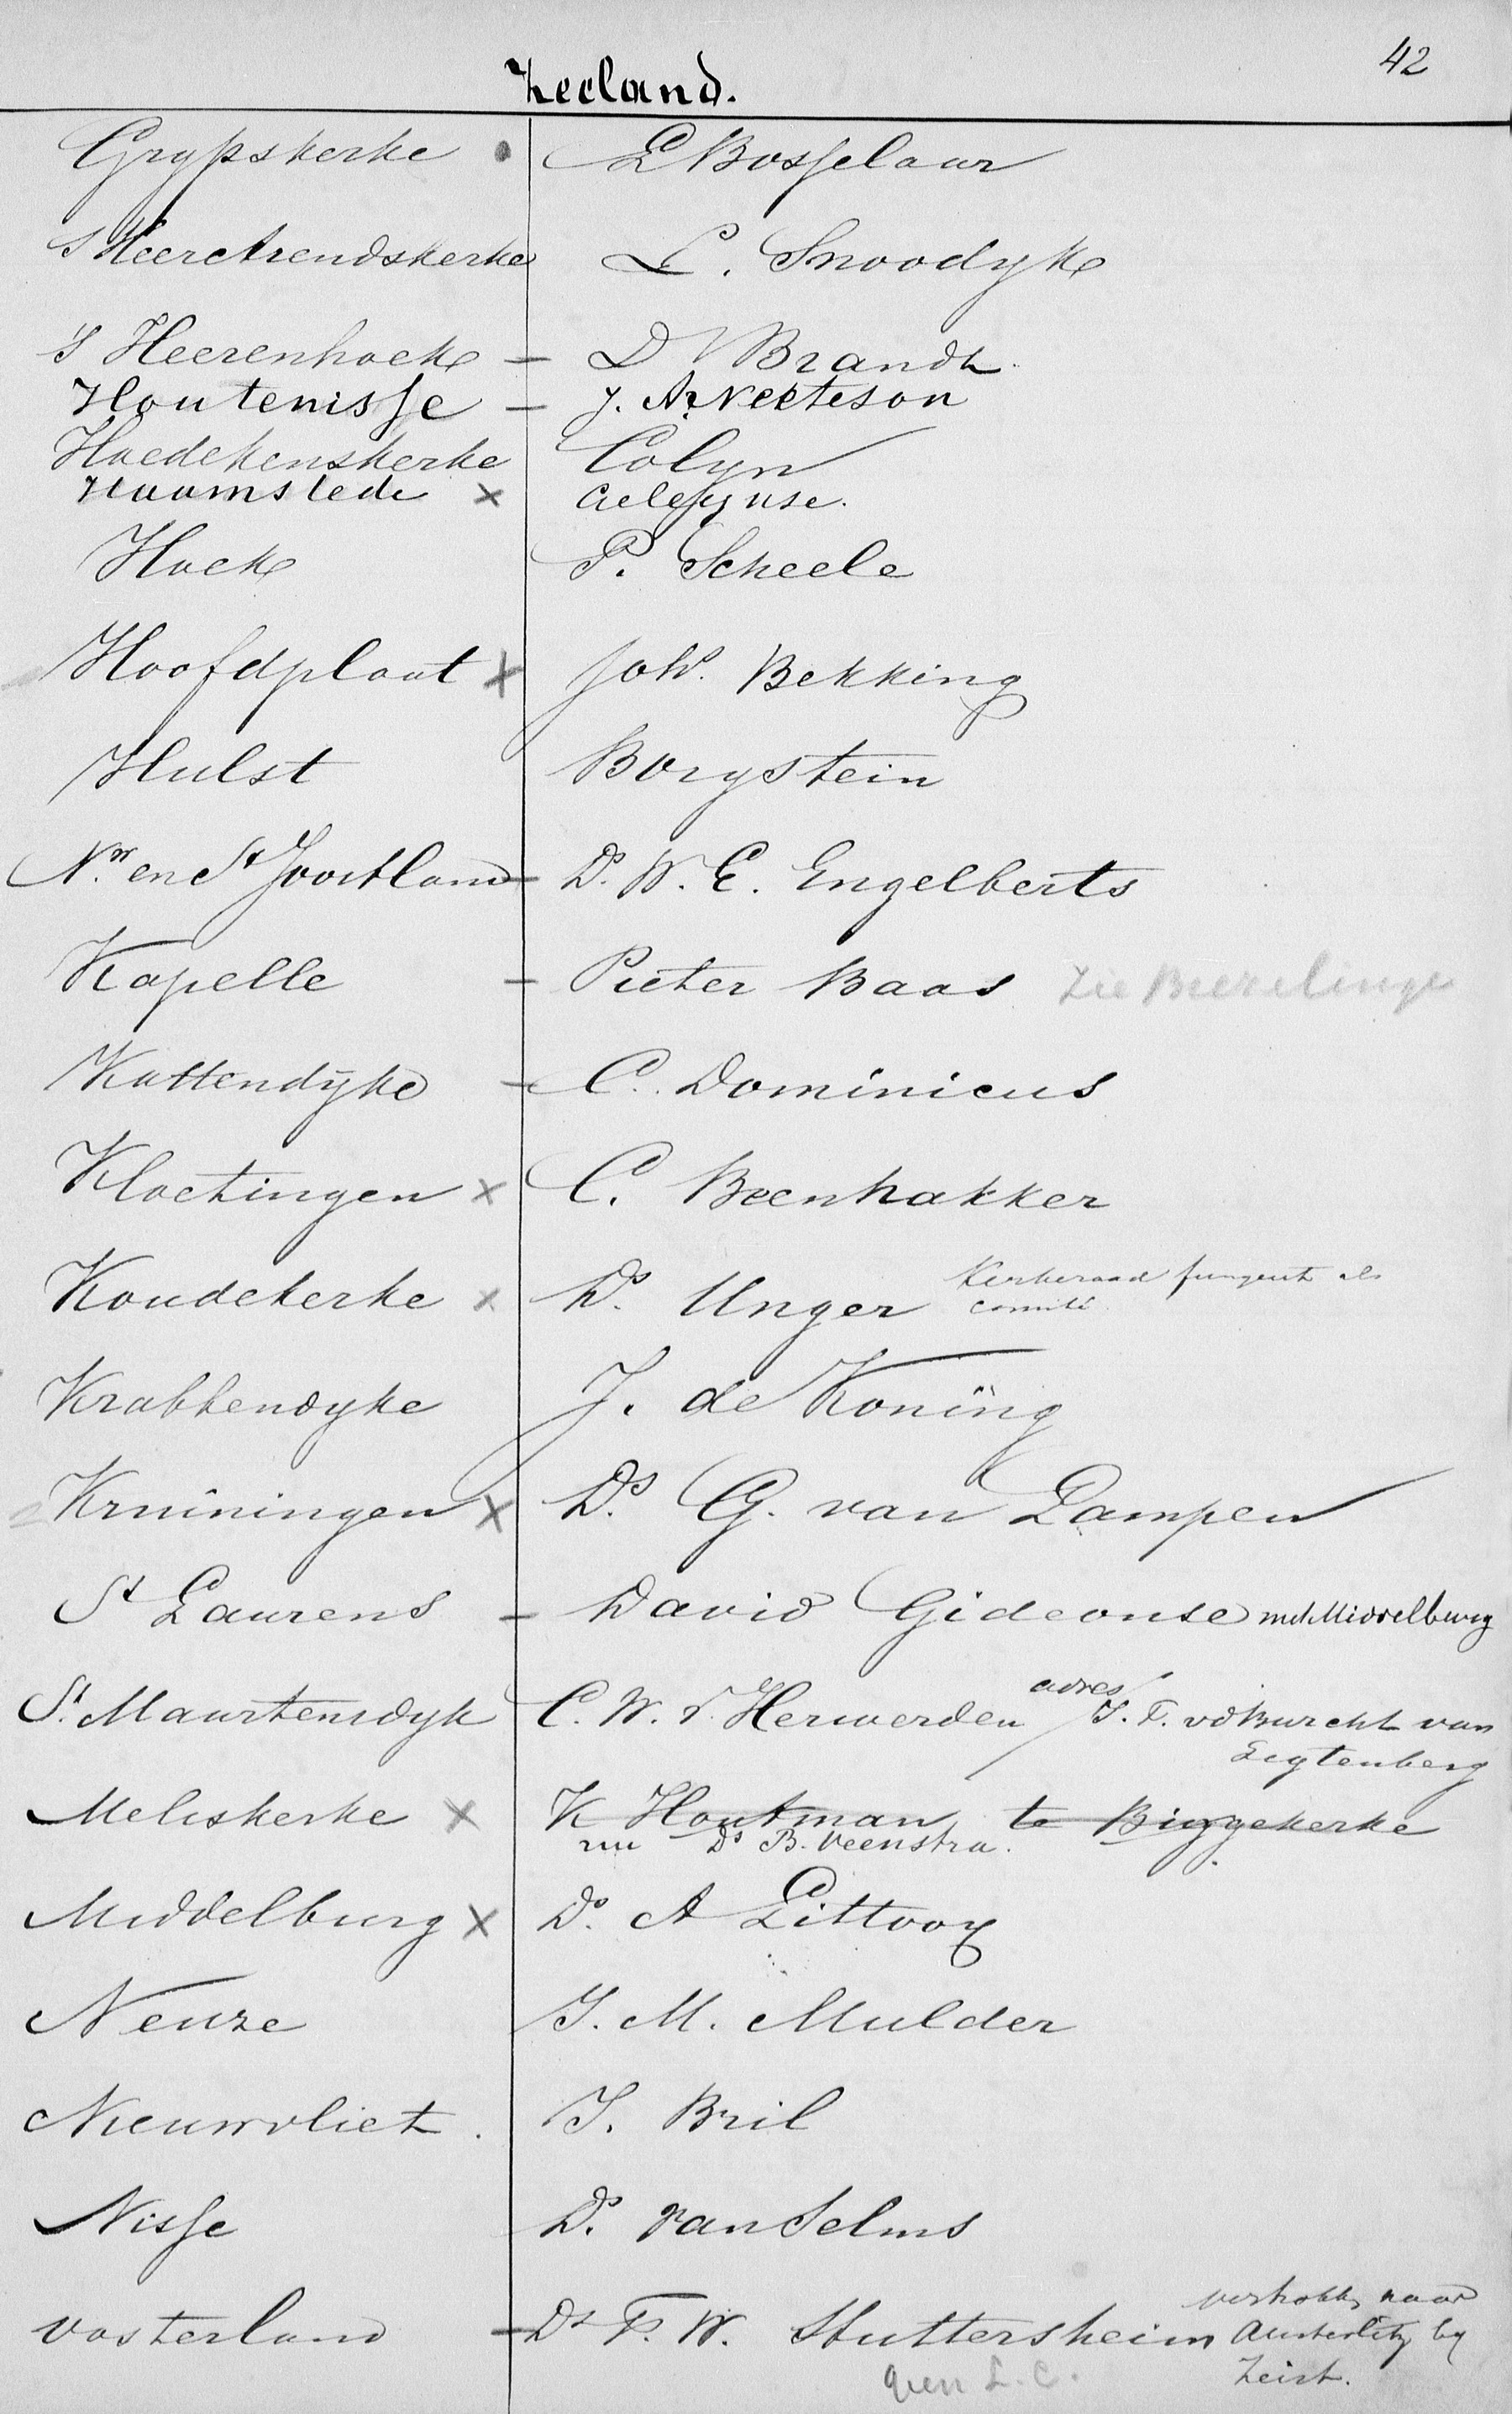 42
Zeeland.
Grypskerke L Bosselaar
s Heer Arendskerke L. Snoodyk
's Heerenhoek - D Brandt
Houtenisse - J. A. Neeteson
Hoedekenskerke Colyn
Haamstede x Gelefynse.
Hoek P. Scheele
Hoofdplaat x Johs. Bekking
Hulst Borgstein
Nw. en St Joostland - Ds. W. E. Engelberts
Kapelle - Pieter Baas Zie Biezelinge
Kattendyke - C. Dominicus
Kloetingen x C. Beenhakker
Koudekerke x Ds. Unger Kerkeraad fungeert als
comité
Krabbendyke J. de Koning
Kruiningen x Ds G. van Lampen
St Laurens - David Gideonse met Middelburg
St. Maartensdyk C. W. v. Herwerden adres / J. F. vd Burcht van
Ligtenberg
Meliskerke x K Houtman te Biggekerke
nu Ds B. Veenstra.
Middelburg x Ds. A Littooy
Neuze J. M. Mulder
Nieuwvliet. J. Bril
Nisse Ds. van Selms
Oosterland - Ds F. W. Stuttersheim vertrokk. naar
Austerlitz by
Zeist.
geen L. C.